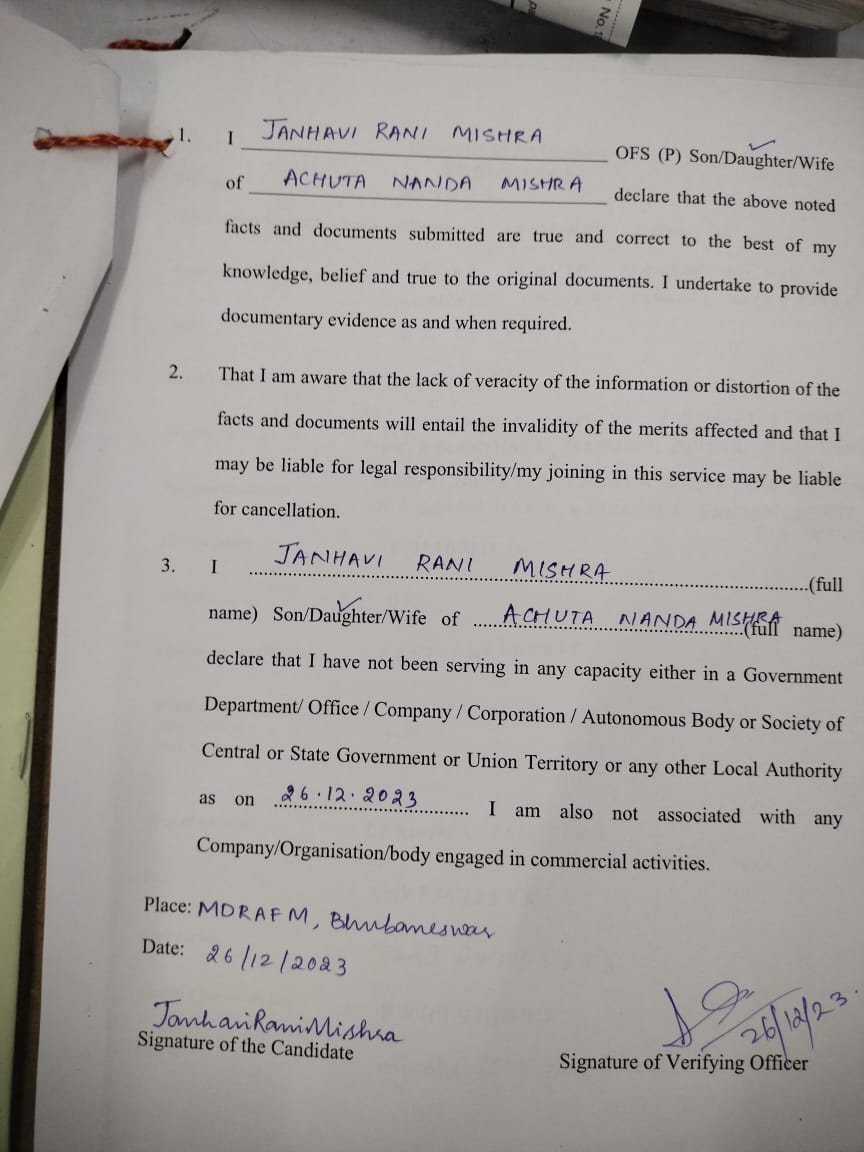 No.1
1. I JANHAVI RANI MISHRA OFS (P) Son/Daughter/Wife
of ACHUTA NANDA MISHRA declare that the above noted
facts and documents submitted are true and correct to the best of my
knowledge, belief and true to the original documents. I undertake to provide
documentary evidence as and when required.
2. That I am aware that the lack of veracity of the information or distortion of the
facts and documents will entail the invalidity of the merits affected and that I
may be liable for legal responsibility/my joining in this service may be liable
for cancellation.
3. I JANHAVI RANI MISHRA (full
name) Son/Daughter/Wife of ACHUTA NANDA MISHRA (full name)
declare that I have not been serving in any capacity either in a Government
Department/ Office / Company / Corporation / Autonomous Body or Society of
Central or State Government or Union Territory or any other Local Authority
as on 26.12.2023 I am also not associated with any
Company/Organisation/body engaged in commercial activities.
Place: MDRAFM, Bhubaneswar
Date: 26/12/2023
Janhavi Rani Mishra
Signature of the Candidate
26/12/23.
Signature of Verifying Officer